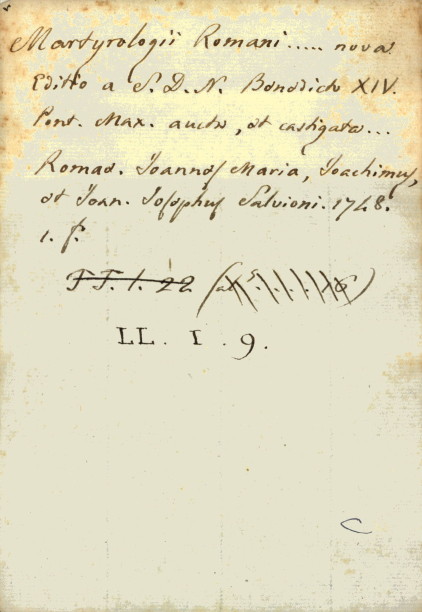 Martyrologii Romani ..... nova
Editio a S. D. N. Benedicto XIV.
Pont. Max. aucta, et castigata ...
Romae. Joannes Maria, Joachimus,
et Joan. Josephus Salvioni. 1748.
1. f.
FF. 1. 22
LL. I. 9.
C